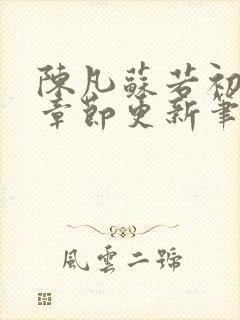 陳凡蘇若初
章節更新筆
風雲二號